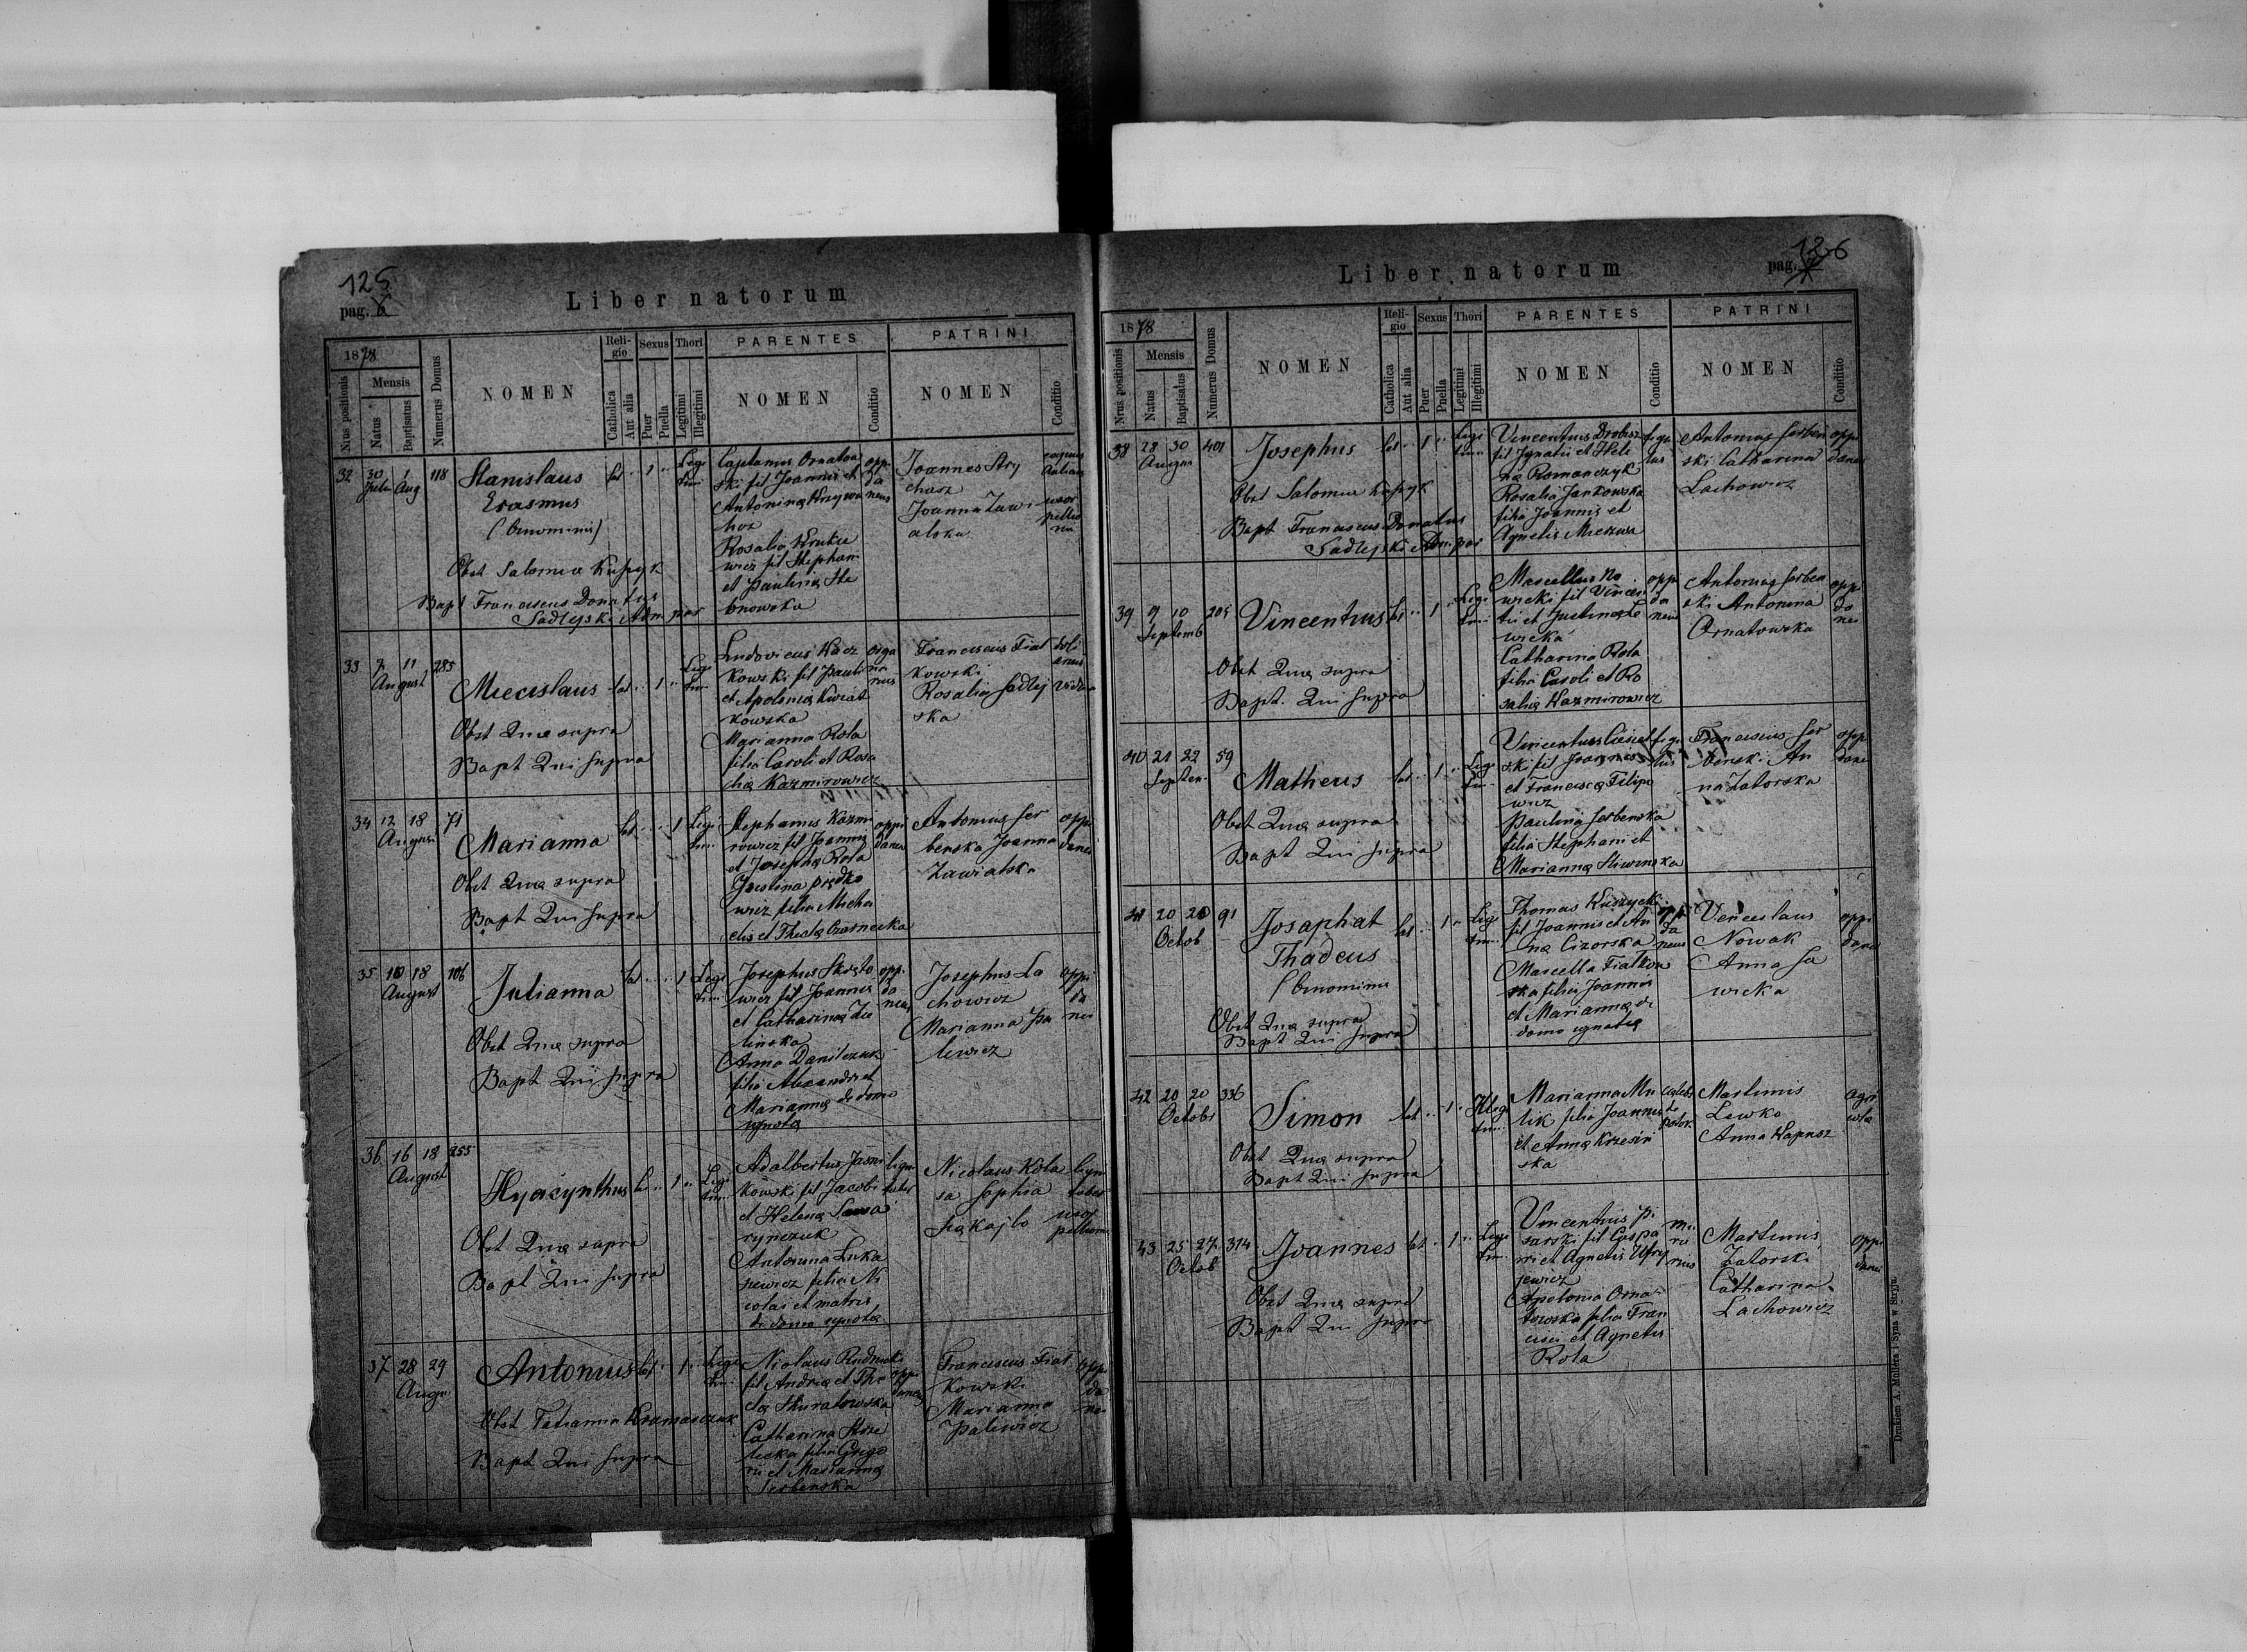 125
pag. 6
Liber natorum
1878
Nrus positionis
Mensis
Natus
Baptisatus
Numerus Domus
NOMEN
Religio
Catholica
Aut alia
Sexus
Puer
Puella
Thori
Legitimi
Illegitimi
PARENTES
NOMEN
Conditio
PATRINI
NOMEN
Conditio
32 30 Julii 1 Aug 118
Stanislaus
Erasmus
(binominis)
Obst Salomea Kupyk
Bapt Franciscus Donatus
Sadlejski Adm. par
lat " 1 " Legi
timi
Cajetanus Ornatow
ski fil Joannis et
Antonina Krzywo
Rosalia
fil Stephani
et Paulina Ste
bnowska
oppi
da
neus
Joannes Ary
Joanna Zawi
alska
uxor
33 7 11 August 285
Miecislaus
Obst Quae supra
Bapt Qui supra
lat " 1 " Legi
timi
Ludovicus Kacz
kowski fil Pauli
et Apolonia Kwiat
kowska
Marianna Rola
filia Caroli et Rosa
lia Kazmirowicz
orga
na
rius
Franciscus Fiat
kowski
Rosalia Sadlej
ska
vidua
34 12 18 August 71
Marianna
Obst Quae supra
Bapt Qui supra
lat " " 1 Legi
timi
Stephanus Kazmi
rowicz fil Joannis
et Josepha Rola
Justina Prędko
wicz filia Micha
elis et Thecla Czarnecka
oppi
daneus
Antonius Ser
benski Joanna
Zawialska
oppi
danei
35 10 18 August 106
Julianna
Obst Quae supra
Bapt Qui supra
lat " " 1 Legi
timi
Josephus Skręto
wicz fil Joannis
et Catharina Zie
linska
Anna Danilczuk
filia Alexandri et
Marianna de domo
ignota
oppi
da
neus
Josephus La
chowicz
Marianna Pa
lewicz
oppi
da
nei
36 16 18 August 255
Hyacynthus
Obst Quae supra
Bapt Qui supra
lat " 1 " Legi
timi
Adalbertus Jasni
kowski fil Jacobi
et Helena Sawa
rynczuk
Antonina Luka
siewicz filia Ni
colai et matris
de domo ignota
Nicolaus Kola
sa Sophia
uxor
37 28 29 August
Antonius
Obst Tatianna Kramarczuk
Bapt Qui supra
lat " 1 " Legi
timi
Nicolaus Rudnicki
fil Andrea et The
cla Skuratowska
Catharina Strze
lecka filia Grego
rii et Marianna
Serbenska
oppi
daneus
Franciscus Fiat
kowski
Marianna
Palewicz
oppi
da
nei
126
pag. 7
Liber natorum
1878
Nrus positionis
Mensis
Natus
Baptisatus
Numerus Domus
NOMEN
Religio
Catholica
Aut alia
Sexus
Puer
Puella
Thori
Legitimi
Illegitimi
PARENTES
NOMEN
Conditio
PATRINI
NOMEN
Conditio
38 28 30 August 401
Josephus
Obst Salomea Kupyk
Bapt Franciscus Donatus
Sadlejski Adm. par
lat " 1 " Legi
timi
Vincentius Drobisz
fil Ignatii et Hele
na Romanczyk
Rosalia Jankowska
filia Joannis et
Agnetis
figu
lus
Antonius Serben
ski Catharina
Lachowicz
oppi
danei
39 9 10 Septemb 205
Vincentius
Obst Quae supra
Bapt. Qui supra
lat " 1 " Legi
timi
Marcellus No
wicki fil Vincen
tii et Justina Le
wicka
Catharina Rola
filia Caroli et Ro
salia Kazmirowicz
oppi
da
neus
Antonius Serben
ski Antonina
Ornatowska
oppi
da
nei
40 21 22 Septem. 59
Matheus
Obst Quae supra
Bapt Qui supra
lat " 1 " Legi
timi
fil Joannis
et Francisca Filipo
wicz
Paulina Serbenska
filia Stephani et
Marianna Sliwinska
figu
lus
Franciscus Ser
benski An
na Zatorska
oppi
danei
41 20 20 Octob 91
Josaphat
Thadeus
(binominis
Obst Quae supra
Bapt Qui supra
lat " 1 " Legi
timi
Thomas Kuszycki
fil Joannis et An
na Cizorska
Marcella Fiatkow
ska filia Joannis
et Marianna de
domo ignota
oppi
da
neus
Venceslaus
Nowak
Anna Sa
wicka
oppi
danei
42 20 20 Octobr 336
Simon
Obst Quae supra
Bapt Qui supra
lat " 1 " Illegi
timi
Marianna Mu
lik filia Joannis
et Anna Krzesin
ska
Martinus
Lewko
Anna Kapusz
agri
cola
43 25 27 Octob 314
Joannes
Obst Quae supra
Bapt Qui supra
lat " 1 " Legi
timi
Vincentius Pi
sarski fil Caspa
ri et Agnetis
Apolonia Orna
towska filia Fran
cisci et Agnetis
Rola
mu
ra
rius
Martinus
Zatorski
Catharina
Lachowicz
oppi
danei
Drukiem A. Müllera i Syna w Stryju.